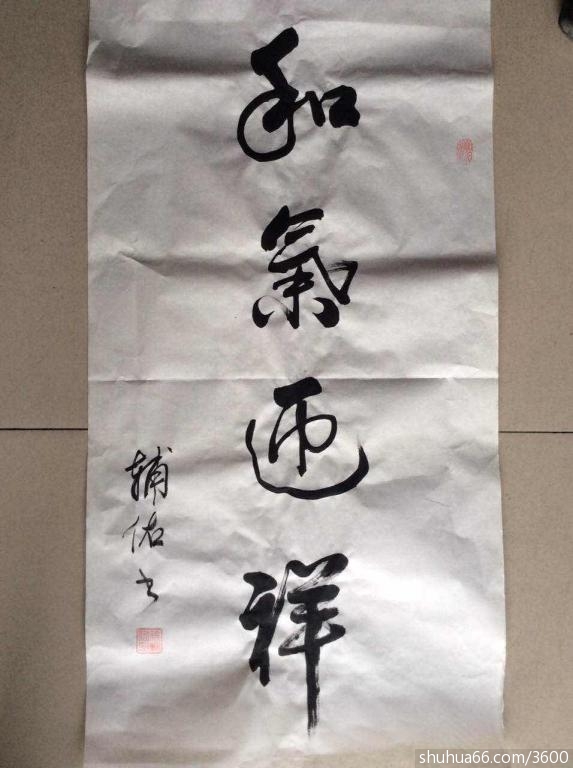 和氣迎祥
輔佑书
shuhua66.com/3600